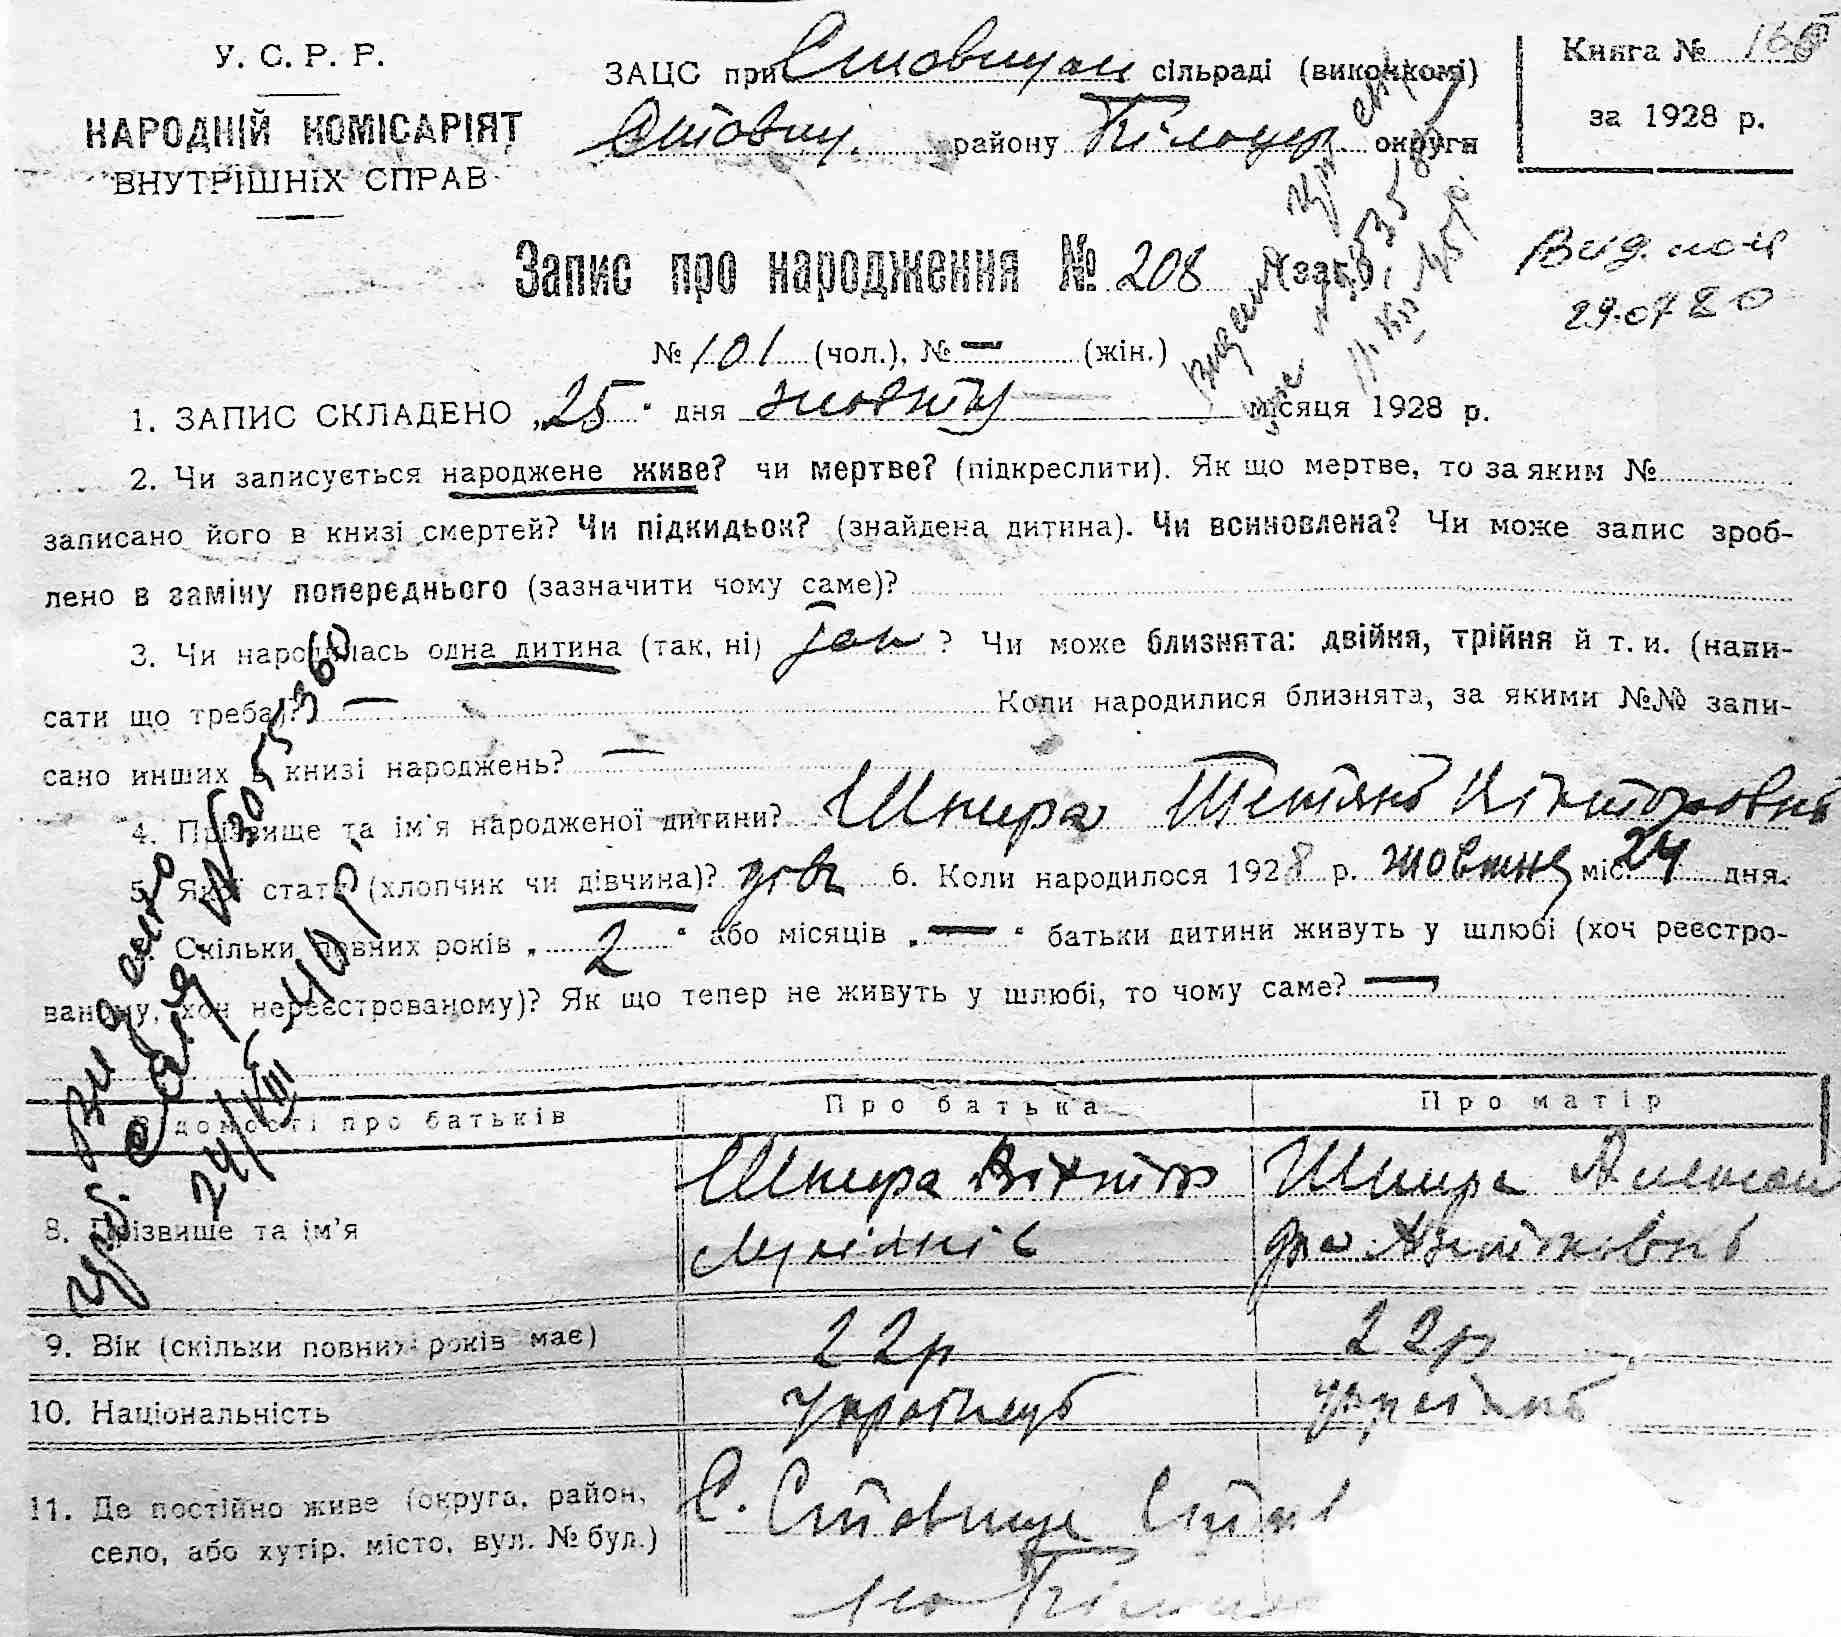 У. С. Р. Р.
НАРОДНІЙ КОМІСАРІЯТ
ВНУТРІШНІХ СПРАВ
ЗАЦС при сільраді (виконкомі)
Ставищ. району Білоцер. округи
Книга №
за 1928 р.
Запис про народження № 208
Вид. пов
29.07 80
№ 101 (чол.), № — (жін.)
1. ЗАПИС СКЛАДЕНО „25“ дня жовтня місяця 1928 р.
2. Чи записується народжене живе? чи мертве? (підкреслити). Як що мертве, то за яким №
записано його в книзі смертей? Чи підкидьок? (знайдена дитина). Чи всиновлена? Чи може запис зроб-
лено в заміну попереднього (зазначити чому саме)?
3. Чи народилась одна дитина (так, ні) так ? Чи може близнята: двійня, трійня й т. и. (напи-
сати що треба)? — Коли народилися близнята, за якими №№ запи-
сано инших в книзі народжень? —
4. Прізвище та ім'я народженої дитини? Шкира Тетяна Вікторовна
5. Якої стати (хлопчик чи дівчина)? дівч 6. Коли народилося 1928 р. жовтня міс. 24 дня.
Скільки повних років „ 2 “ або місяців „ — “ батьки дитини живуть у шлюбі (хоч реєстро-
ваному, хоч нереєстрованому)? Як що тепер не живуть у шлюбі, то чому саме? —
Відомості про батьків Про батька Про матір
8. Прізвище та ім'я
Шкира Віктор
Шкира Алексан
дра Антоновна
9. Вік (скільки повних років має) 22р 22р
10. Національність українець українка
11. Де постійно живе (округа, район,
село, або хутір, місто, вул. № буд.)
С. Ставище